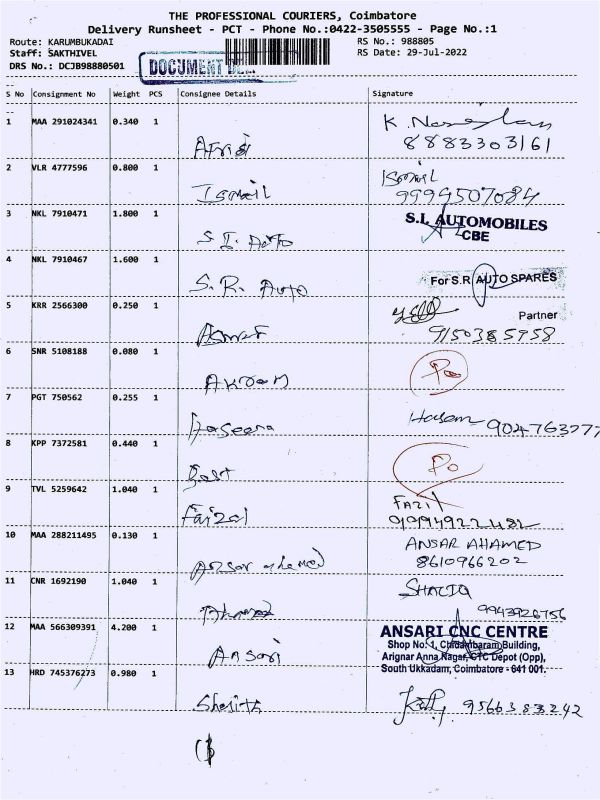 THE PROFESSIONAL COURIERS, Coimbatore
Delivery Runsheet - PCT - Phone No.:0422-3505555 - Page No.:1
Route: KARUMBUKADAI RS No.: 988805
Staff: SAKTHIVEL RS Date: 29-Jul-2022
DRS No.: DCJB98880501 DOCUMENT
S No Consignment No Weight PCS Consignee Details Signature
1 MAA 291024341 0.340 1 K.
8883303161
2 VLR 4777596 0.800 1 Ismail Ismail
9994507084
3 NKL 7910471 1.800 1 S.I. Auto S.I. AUTOMOBILES
CBE
4 NKL 7910467 1.600 1 S.R. Auto For S.R AUTO SPARES
5 KRR 2566300 0.250 1 Partner
9150385958
6 SNR 5108188 0.080 1 Akram
7 PGT 750562 0.255 1 Haseena
8 KPP 7372581 0.440 1
9 TVL 5259642 1.040 1 Faizal
10 MAA 288211495 0.130 1 Ansar ahamed ANSAR AHAMED
8610966202
11 CNR 1692190 1.040 1 Ahamed
9943926756
12 MAA 566309391 4.200 1 Ansari ANSARI CNC CENTRE
Shop No: 1, Chidambaram Building,
Arignar Anna Nagar, CTC Depot (Opp),
South Ukkadam, Coimbatore - 641 001.
13 HRD 745376273 0.980 1 9566383242